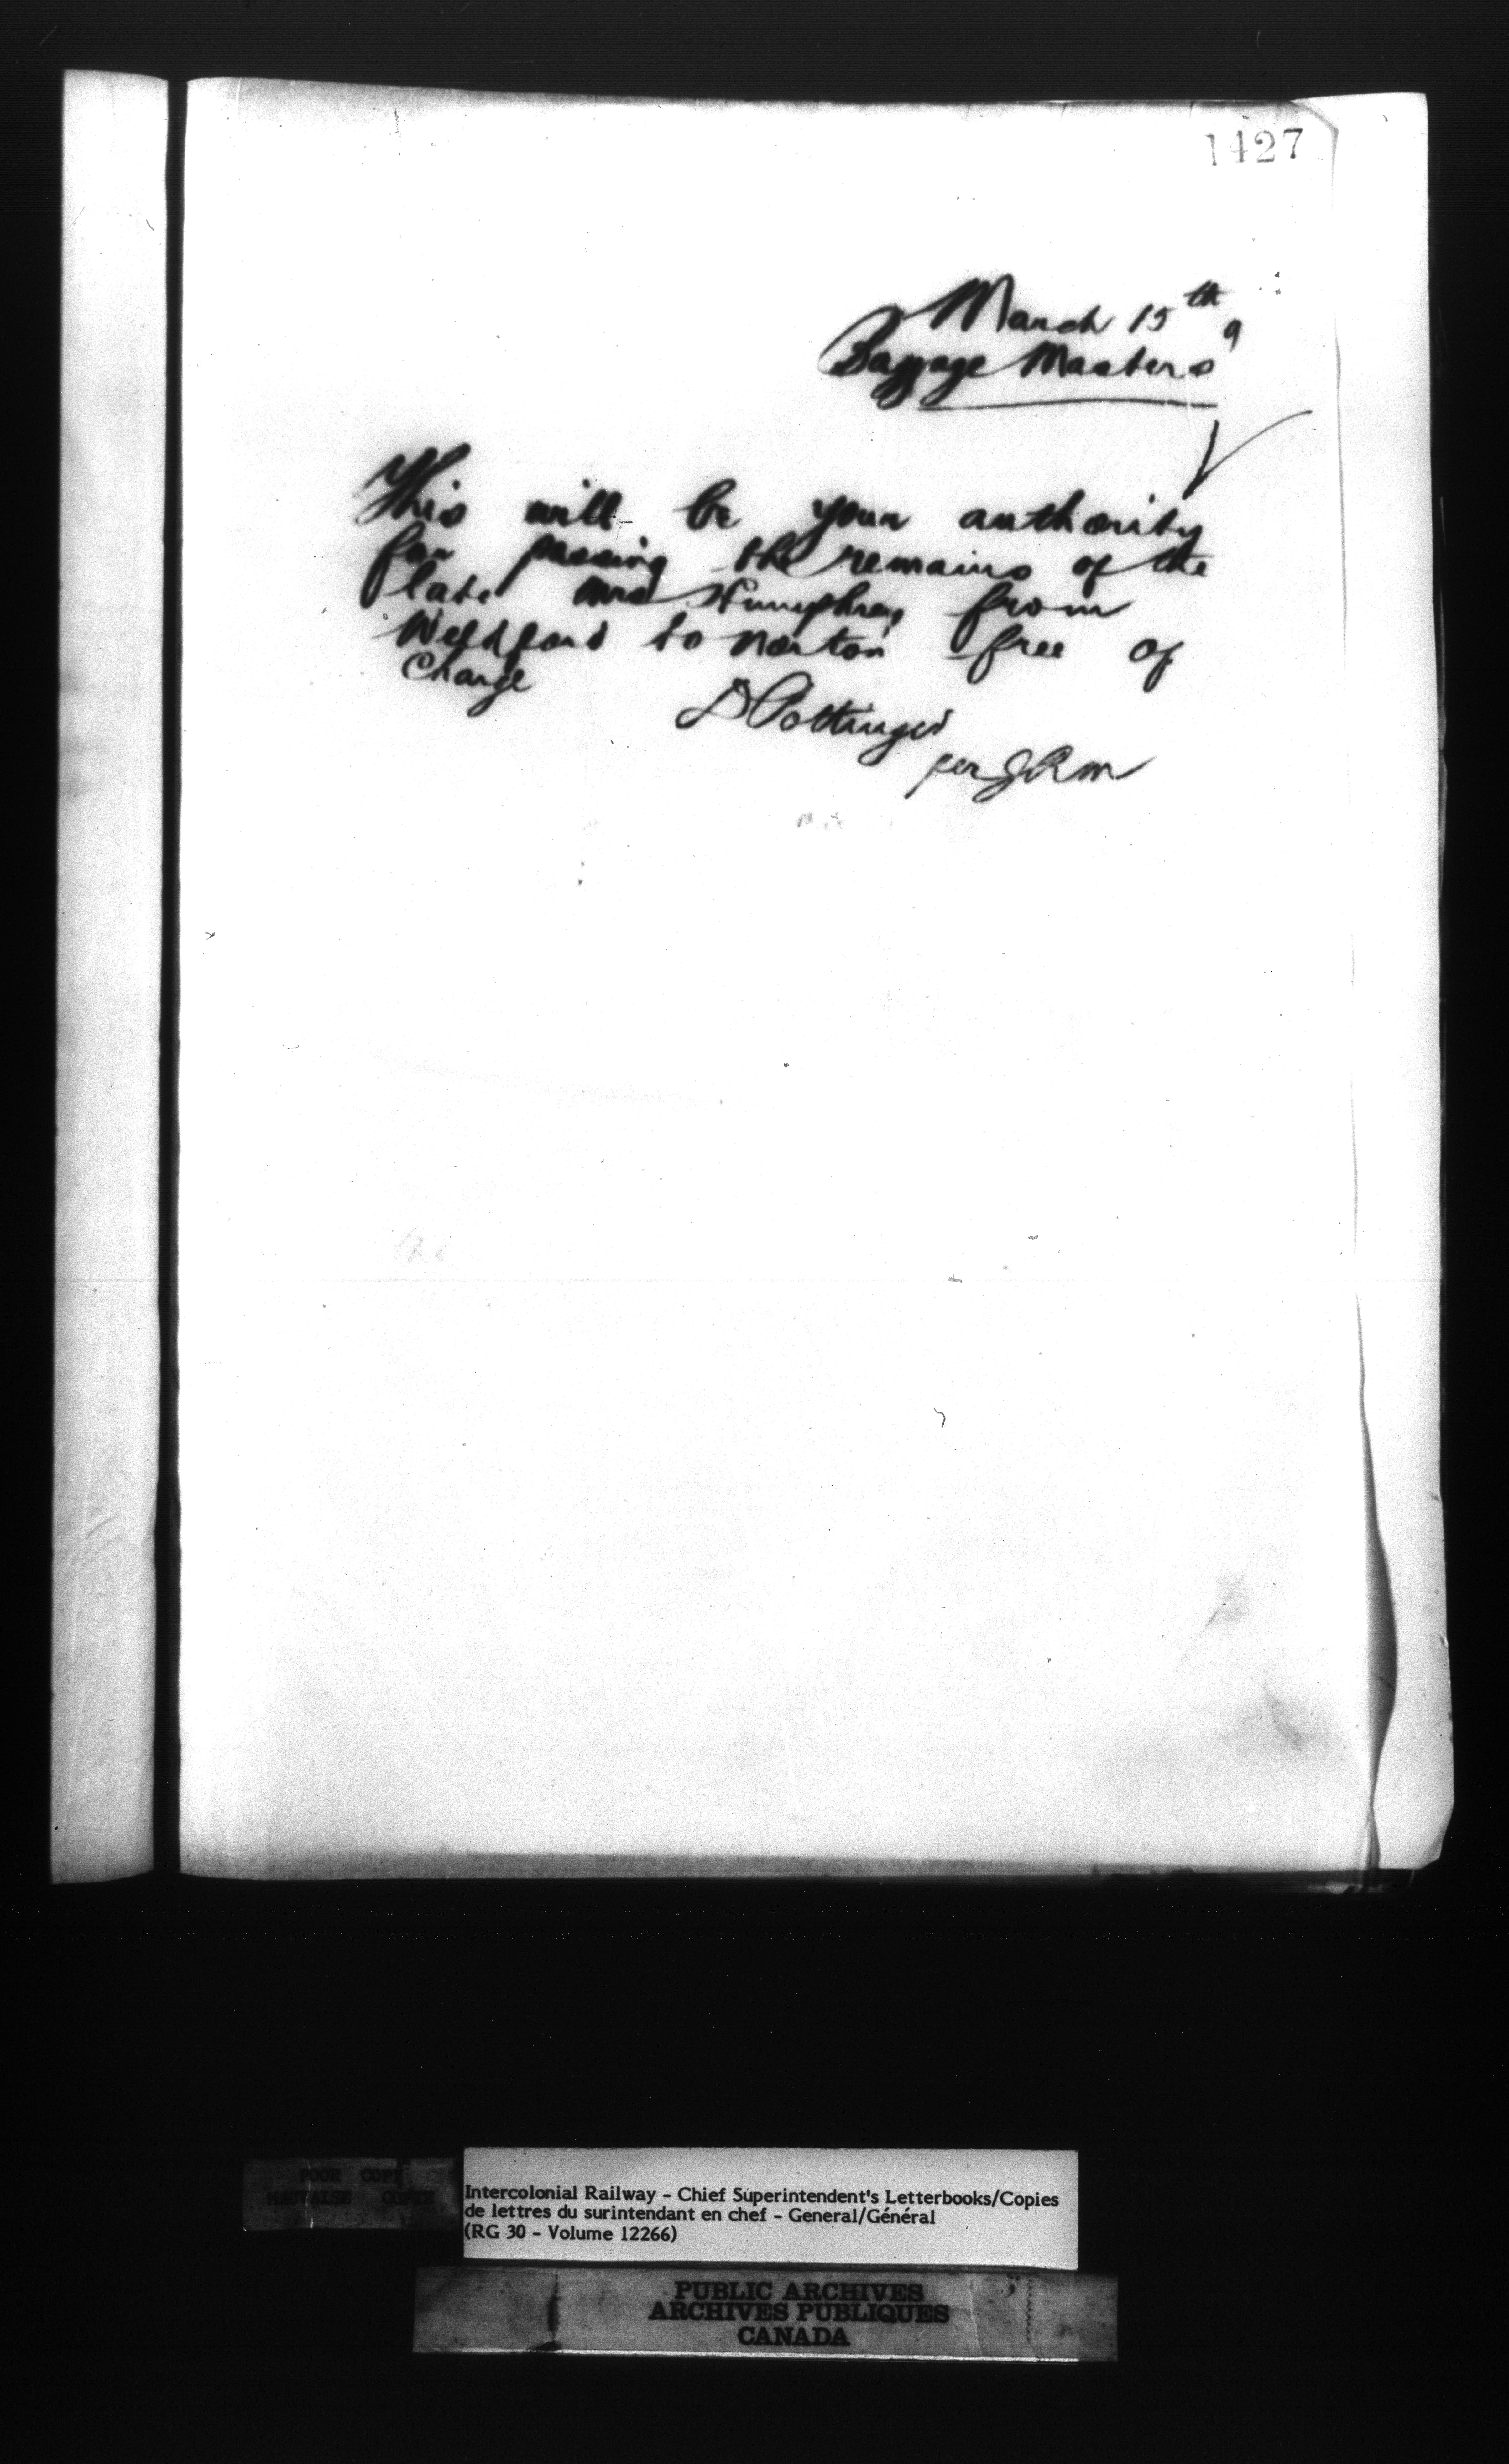 1427
March 15th 9
Baggage Masters
This will be your authority
for passing the remains of the
late Mrs Humphrey from
Weldford to Norton free of
Charge
D Pottinger
per JRM
POOR COPY
MAUVAISE COPIE
Intercolonial Railway - Chief Superintendent's Letterbooks/Copies
de lettres du surintendant en chef - General/Général
(RG 30 - Volume 12266)
PUBLIC ARCHIVES
ARCHIVES PUBLIQUES
CANADA